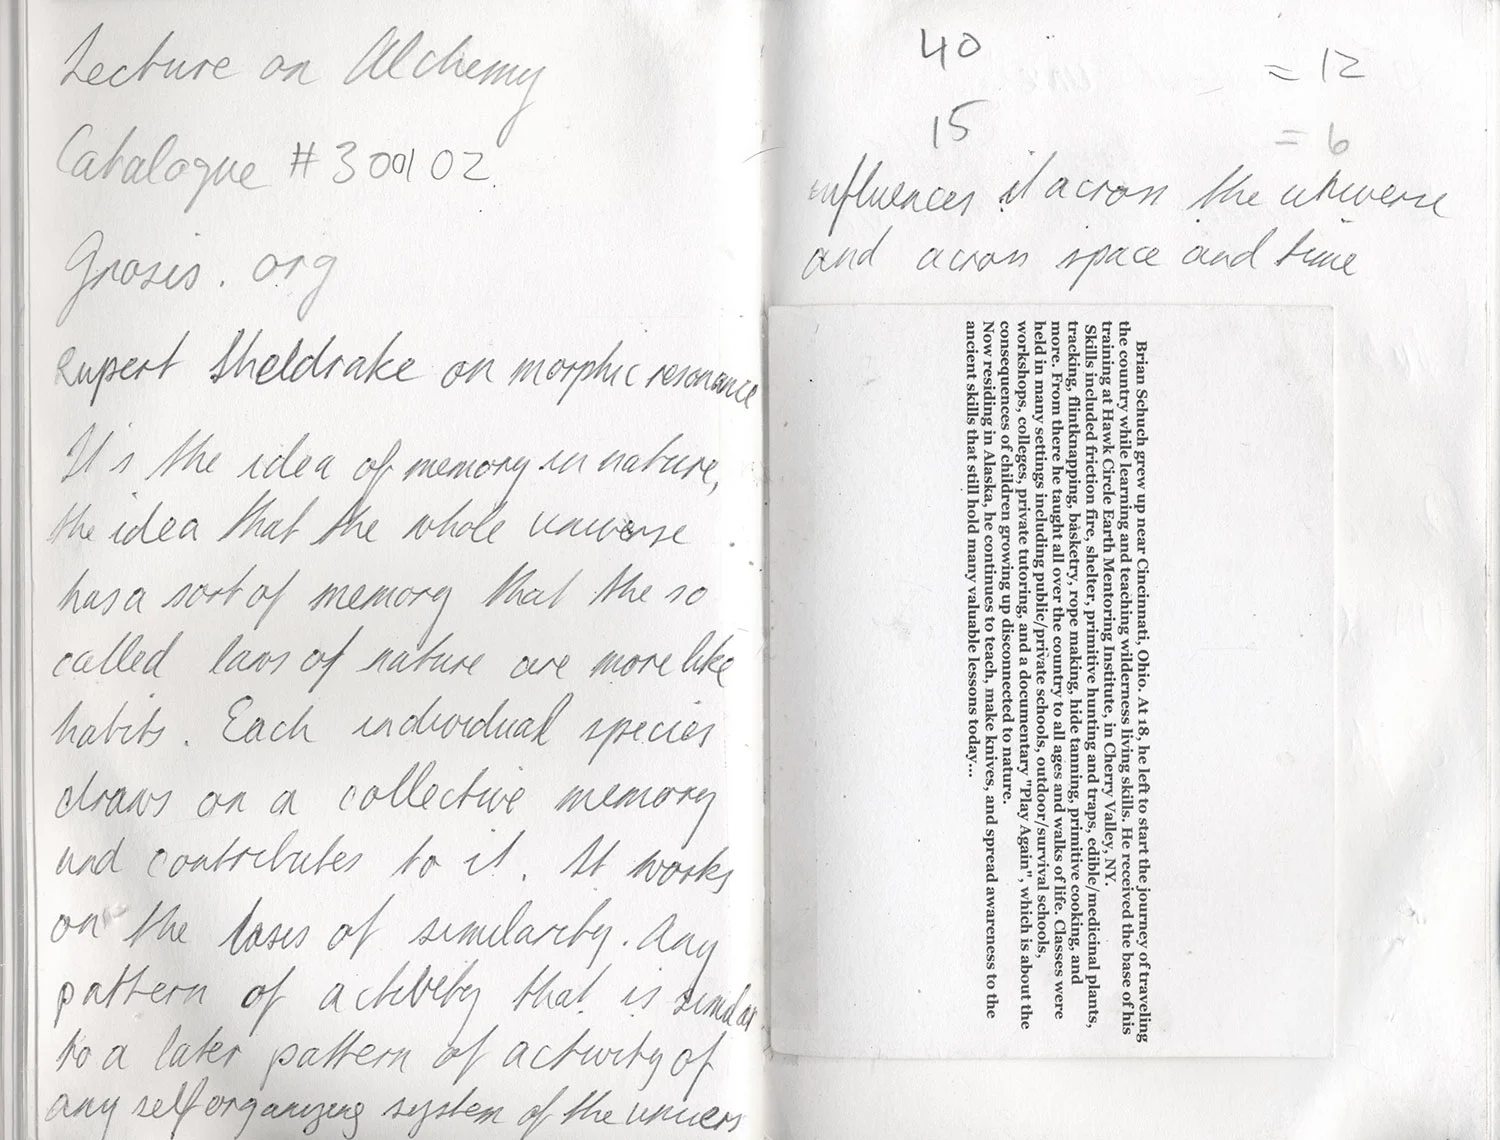 Lecture on Alchemy
Catalogue #300102.
Gnosis.org
Rupert Sheldrake on morphic resonance
It's the idea of memory in nature,
the idea that the whole universe
has a sort of memory that the so
called laws of nature are more like
habits. Each individual species
draws on a collective memory
and contributes to it. It works
on the bases of similarity. Any
pattern of activity that is similar
to a later pattern of activity of
any self organizing system of the univers
40 = 12
15 = 6
influences it across the universe
and across space and time
Brian Schuch grew up near Cincinnati, Ohio. At 18, he left to start the journey of traveling
the country while learning and teaching wilderness living skills. He received the base of his
training at Hawk Circle Earth Mentoring Institute, in Cherry Valley, NY.
Skills included friction fire, shelter, primitive hunting and traps, edible/medicinal plants,
tracking, flintknapping, basketry, rope making, hide tanning, primitive cooking, and
more. From there he taught all over the country to all ages and walks of life. Classes were
held in many settings including public/private schools, outdoor/survival schools,
workshops, colleges, private tutoring, and a documentary "Play Again", which is about the
consequences of children growing up disconnected to nature.
Now residing in Alaska, he continues to teach, make knives, and spread awareness to the
ancient skills that still hold many valuable lessons today...